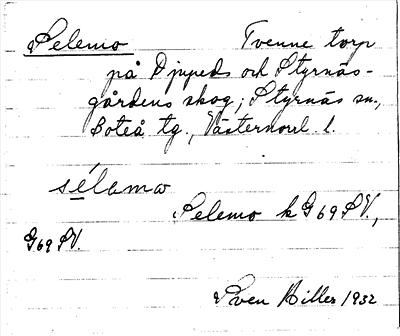 Selemo Tvenne torp
på Djupeds och Styrnäs-
gårdens skog; Styrnäs sn.,
Boteå tg., Västernorrl. l.
sélamω
Selemo k G69SV.,
G69SV.
Sven Hiller 1932